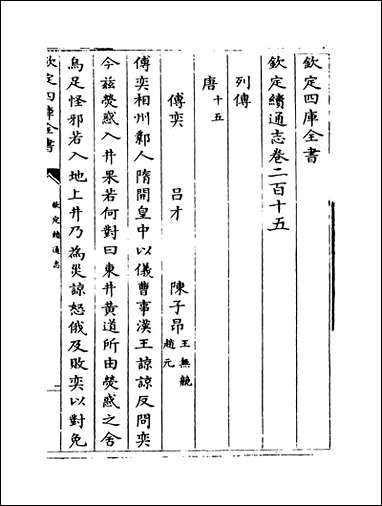 欽定四庫全書
欽定續通志卷二百十五
列傳
唐十五
傅奕 呂才 陳子昂王無競趙元
傅奕相州鄴人隋開皇中以儀曹事漢王諒諒反問奕
今茲熒惑入井果若何對曰東井黃道所由熒惑之舍
烏足怪邪若入地上井乃為災諒怒俄及敗奕以對免
欽定四庫全書
欽定續通志